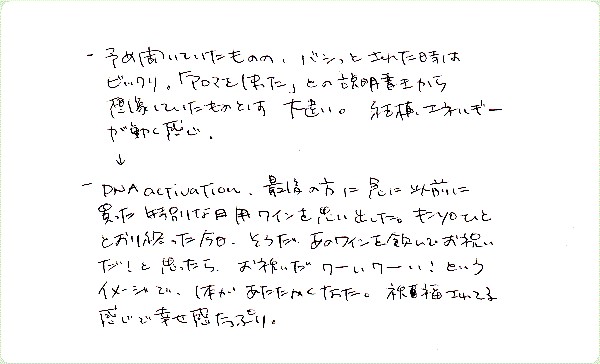 - 予め聞いていたものの、バシっとされた時は
ビックリ。「アロマを使った」との説明書きから
想像していたものとは 大違い。 結構、エネルギー
が動く感じ。
↓
- DNA activation、最後の方に 急に 以前に
買った 特別な日用ワインを思い出した。
とおり終った今日、そうだ、あのワインを飲んでお祝い
だ!と思ったら、お祝いだ ワーいワーい!という
イメージで、体があたたかくなった。祝福されてる
感じで幸せ感たっぷり。